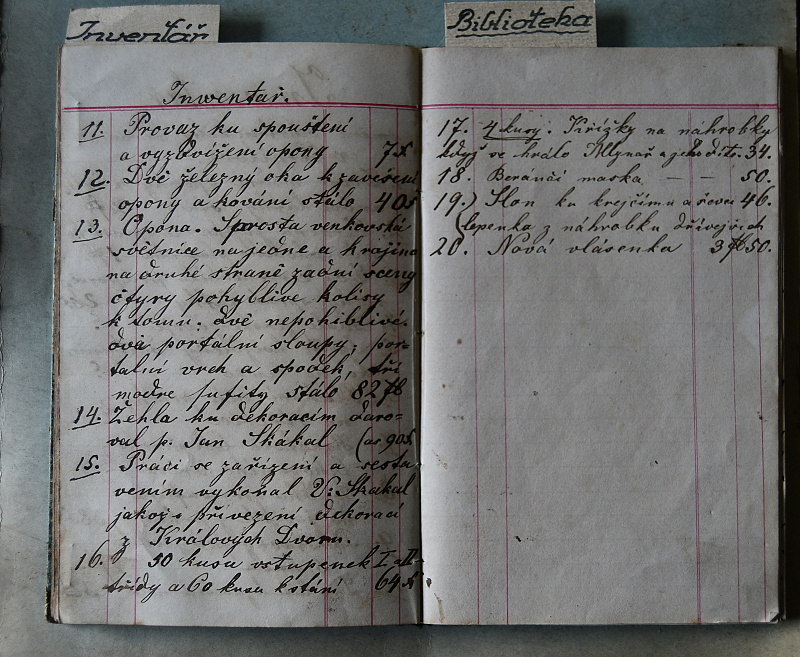 Inventář
Biblioteka
Inwentař.
11. Provaz ku spouštění
a vyzdvižení opony 7
12. Dvě železný oka k zavěšení
opony a kování stálo 40
13. Opona. Sprosta venkovská
světnice na jedné a krajina
na druhé straně zadní sceny
čtyry pohyblivé kolisy
k tomu. dvě nepohiblivé.
dva portální sloupy, por-
talní vrch a spodek, tři
modre sufity stálo 82
14. Žehla ku dekoracím daro-
val p. Jan Skákal (as 90
15. Práci se zařízení a sesta
vením vykonal V. Skákal
jakož i přivezení dekorací
z Králových Dvoru.
16. 50 kusu vstupenek I a II
třídy a 60 kusu k stání 64
17. 4 kusy. Křížky na náhrobky
když se hrálo Mlynář a jeho dítě. 34.
18. Berančí maska — — 50.
19.) Slon ku krejčímu a ševci 46.
(lepenka z náhrobku dřívejších
20. Nová vlásenka 3 50.